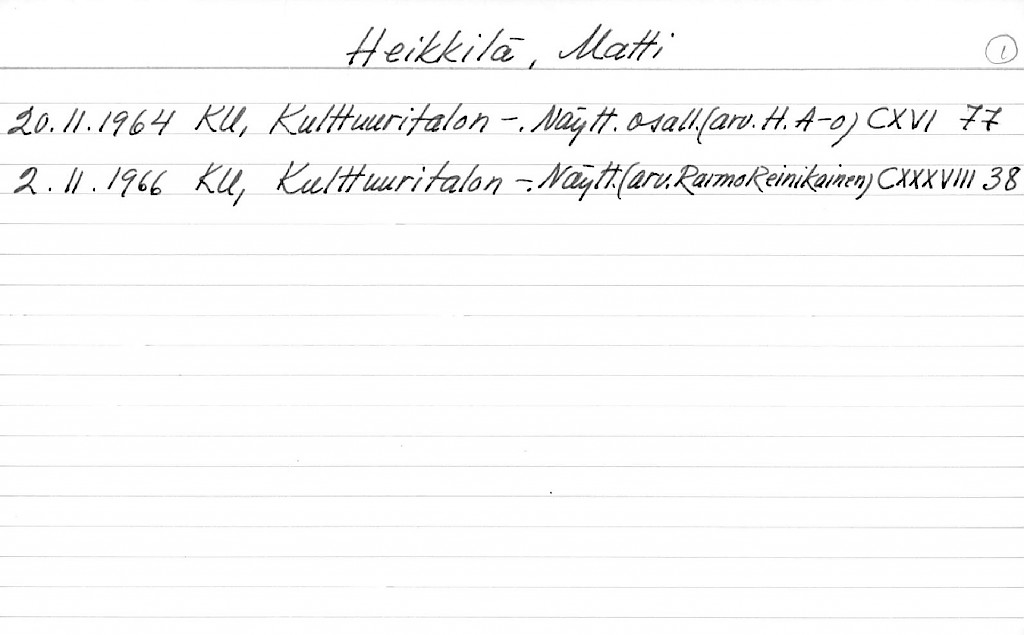 Heikkilä, Matti 1
20.11.1964 KU, Kulttuuritalon -. Näytt. osall. (arv. H. A-o) CXVI 77
2.11.1966 KU, Kulttuuritalon -. Näytt. (arv. Raimo Reinikainen) CXXXVIII 38